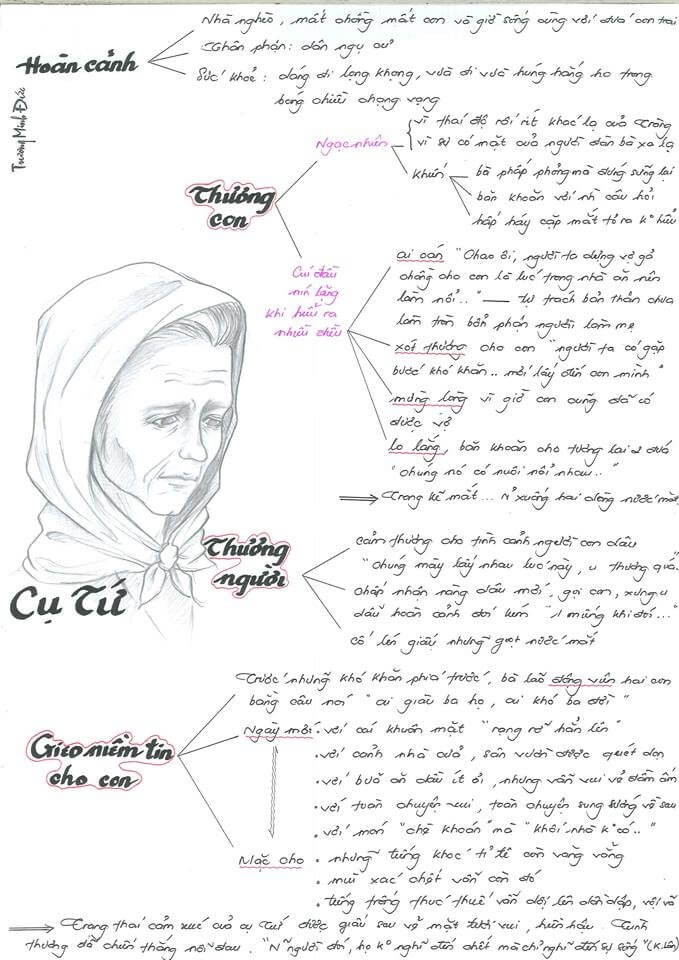 Hoàn cảnh
Nhà nghèo, mất chồng mất con và giờ sống cùng với đứa con trai
Thân phận: dân ngụ cư
Sức khoẻ: dáng đi lọng khọng, vừa đi vừa húng hắng ho trong
bóng chiều chạng vạng
Trương Minh Đức
Thương
con
Ngạc nhiên
vì thái độ rối rít khác lạ của Tràng
vì sự có mặt của người đàn bà xa lạ
khiến
bà phấp phỏng mà đứng sững lại
băn khoăn với nh~ câu hỏi
hấp háy cặp mắt tỏ ra k° hiểu
Cúi đầu
nín lặng
khi hiểu ra
nhiều điều
ai oán "Chao ôi, người ta dựng vợ gả
chồng cho con là lúc trong nhà ăn nên
làm nổi.." — tự trách bản thân chưa
làm tròn bổn phận người làm mẹ
xót thương cho con "người ta có gặp
bước khó khăn.. mới lấy đến con mình"
mừng lòng vì giờ con cũng đã có
được vợ
lo lắng, băn khoăn cho tương lai 2 đứa
"chúng nó có nuôi nổi nhau.."
Trong kẽ mắt... rỉ xuống hai dòng nước mắt
Thương
người
cảm thương cho tình cảnh người con dâu
"chúng mày lấy nhau lúc này, u thương quá.
chấp nhận nàng dâu mới, gọi con, xưng u
dẫu hoàn cảnh đói kém
cố lén giấu những giọt nước mắt
Cụ Tứ
Gieo niềm tin
cho con
Trước những khó khăn phía trước, bà lão động viên hai con
bằng câu nói "ai giàu ba họ, ai khó ba đời"
Ngày mới
. với cái khuôn mặt "rạng rỡ hẳn lên"
. với cảnh nhà cửa, sân vườn được quét dọn
. với bữa ăn dẫu ít ỏi, nhưng vẫn vui vẻ đầm ấm
. với toàn chuyện vui, toàn chuyện sung sướng về sau
. với món "chè khoán" mà "khối nhà k° có.."
Mặc cho
. những tiếng khóc tỉ tê còn vang vẳng
. mùi xác chết vẫn còn đó
. tiếng trống thúc thuế vẫn dội lên dồn dập, vội vã
Trạng thái cảm xúc của cụ Tứ được giấu sau vẻ mặt tươi vui, hiền hậu. Tình
thương đã chiến thắng nỗi đau. "N~ người đói, họ k° nghĩ đến chết mà chỉ nghĩ đến sự sống" (K.Lân)